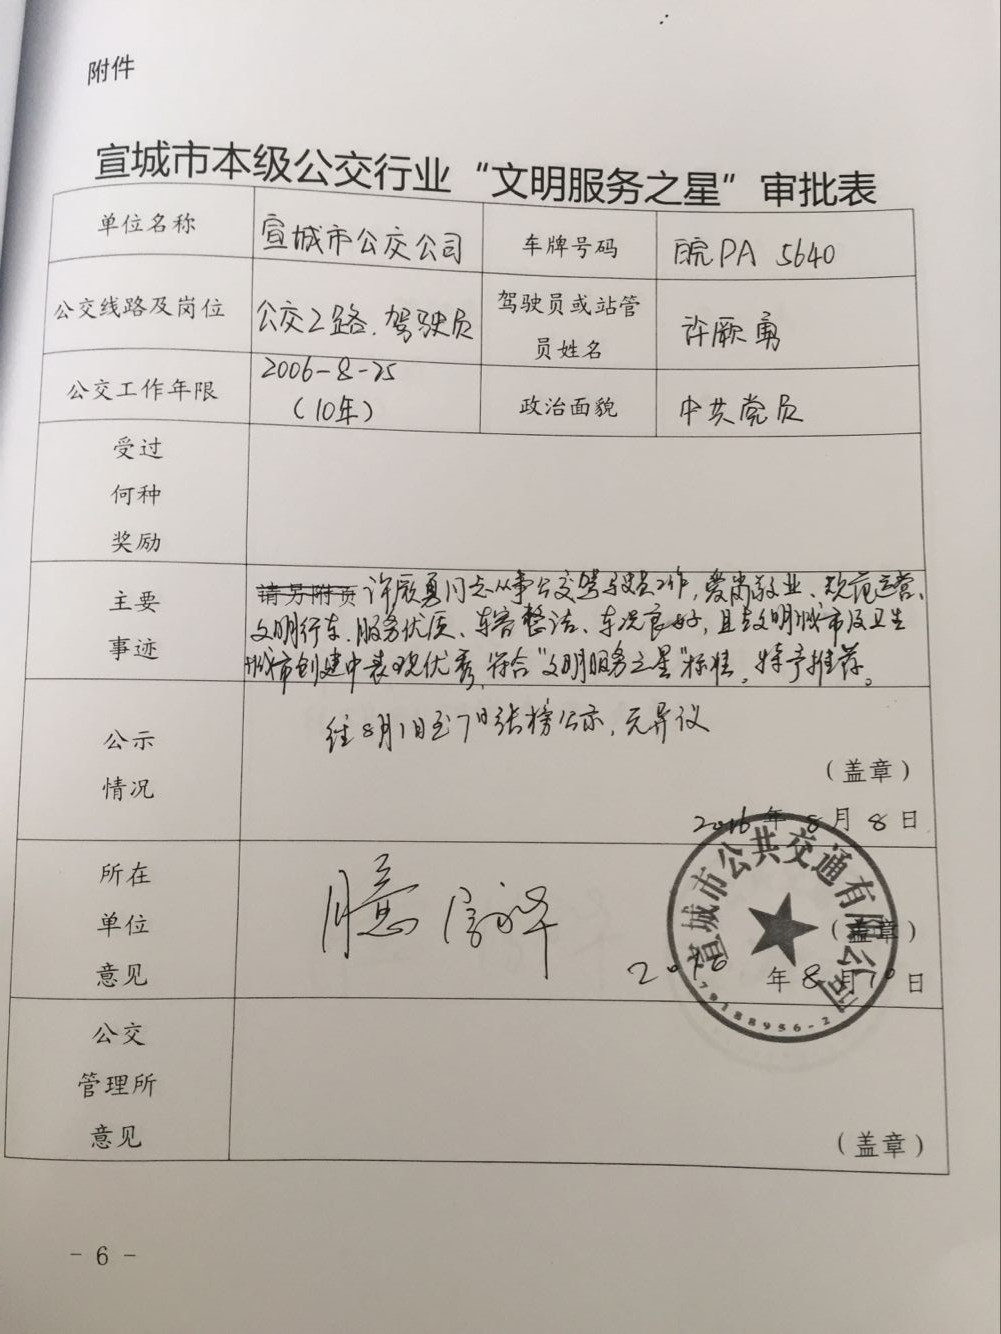 附件
宣城市本级公交行业“文明服务之星”审批表
单位名称 宣城市公交公司 车牌号码 皖PA 5640
公交线路及岗位 公交2路、驾驶员 驾驶员或站管
员姓名 许厥勇
公交工作年限 2006-8-25
(10年) 政治面貌 中共党员
受过
何种
奖励
主要
事迹
请另附页 许厥勇同志从事公交驾驶员工作，爱岗敬业、规范运营、
文明行车、服务优质、车容整洁、车况良好，且在文明城市及卫生
城市创建中表现优秀，符合“文明服务之星”标准。特予推荐。
公示
情况
经8月1日至7日张榜公示，无异议
(盖章)
2016年8月8日
所在
单位
意见
同意
(盖章)
2016年8月10日
宣城市公共交通有限公司
公交
管理所
意见
(盖章)
- 6 -